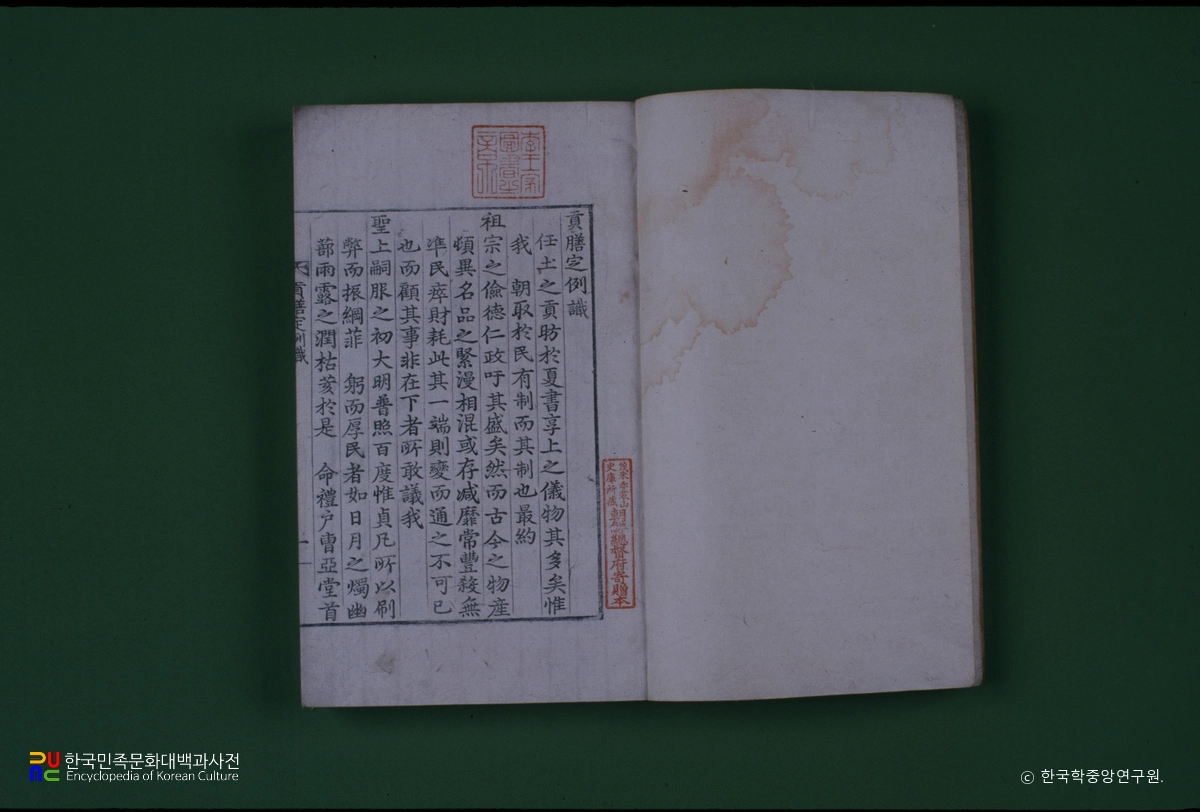 貢膳定例識
任土之貢昉於夏書享上之儀物其多矣惟
我 朝取於民有制而其制也最約
祖宗之儉德仁政吁其盛矣然而古今之物產
煩異名品之緊漫相混或存減靡常豐殺無
準民瘁財耗此其一端則變而通之不可已
也而顧其事非在下者所敢議我
聖上嗣服之初大明普照百度惟貞凡所以刷
弊而振綱菲 躬而厚民者如日月之燭幽
蔀雨露之潤枯荄於是 命禮戶曹亞堂首
貢膳定例識
李王家圖書之章
茂朱赤裳山史庫所藏朝鮮總督府寄贈本
한국민족문화대백과사전
Encyclopedia of Korean Culture
© 한국학중앙연구원.